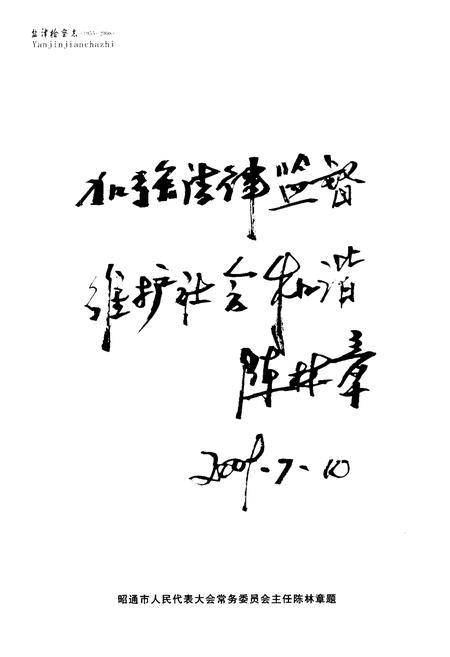 盐津检察志(1955-2008)
Yanjinjianchazhi
加强法律监督
维护社会和谐
陈林章
2009-7-10
昭通市人民代表大会常务委员会主任陈林章题